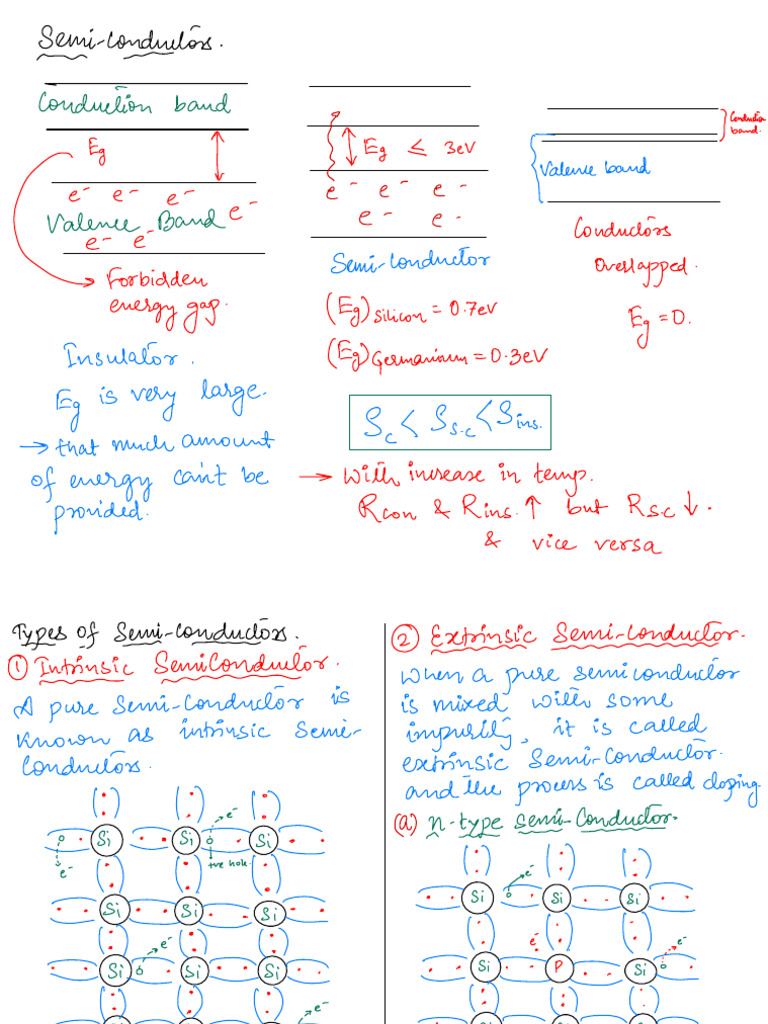 Semi-conductors.
Conduction band
Eg
e⁻ e⁻ e⁻
Valence Band e⁻
e⁻ e⁻
→ Forbidden
energy gap.
Insulator.
Eg is very large.
→ that much amount
of energy can't be
provided.
Eg ≤ 3eV
e⁻ e⁻ e⁻
e⁻ e⁻
Semi-conductor
(Eg)Silicon = 0.7eV
(Eg)Germanium = 0.3eV
Conduction
band.
Valence band
Conductors
Overlapped.
Eg = 0.
Sc < Ss.c < Sins.
→ With increase in temp.
Rcon & Rins. ↑ but Rsc ↓.
& vice versa
Types of Semi-conductors.
① Intrinsic SemiConductor.
A pure Semi-Conductor is
known as intrinsic Semi-
Conductors.
e⁻
Si Si Si
e⁻ +ve hole
Si Si Si
e⁻
Si Si Si
e⁻
Si Si Si
② Extrinsic Semi-Conductor.
When a pure semiconductor
is mixed with some
impurity, it is called
extrinsic Semi-Conductor.
and the process is called doping.
(a) n-type Semi-Conductor.
e⁻
Si Si Si
e⁻ e⁻
Si P Si
Si Si Si